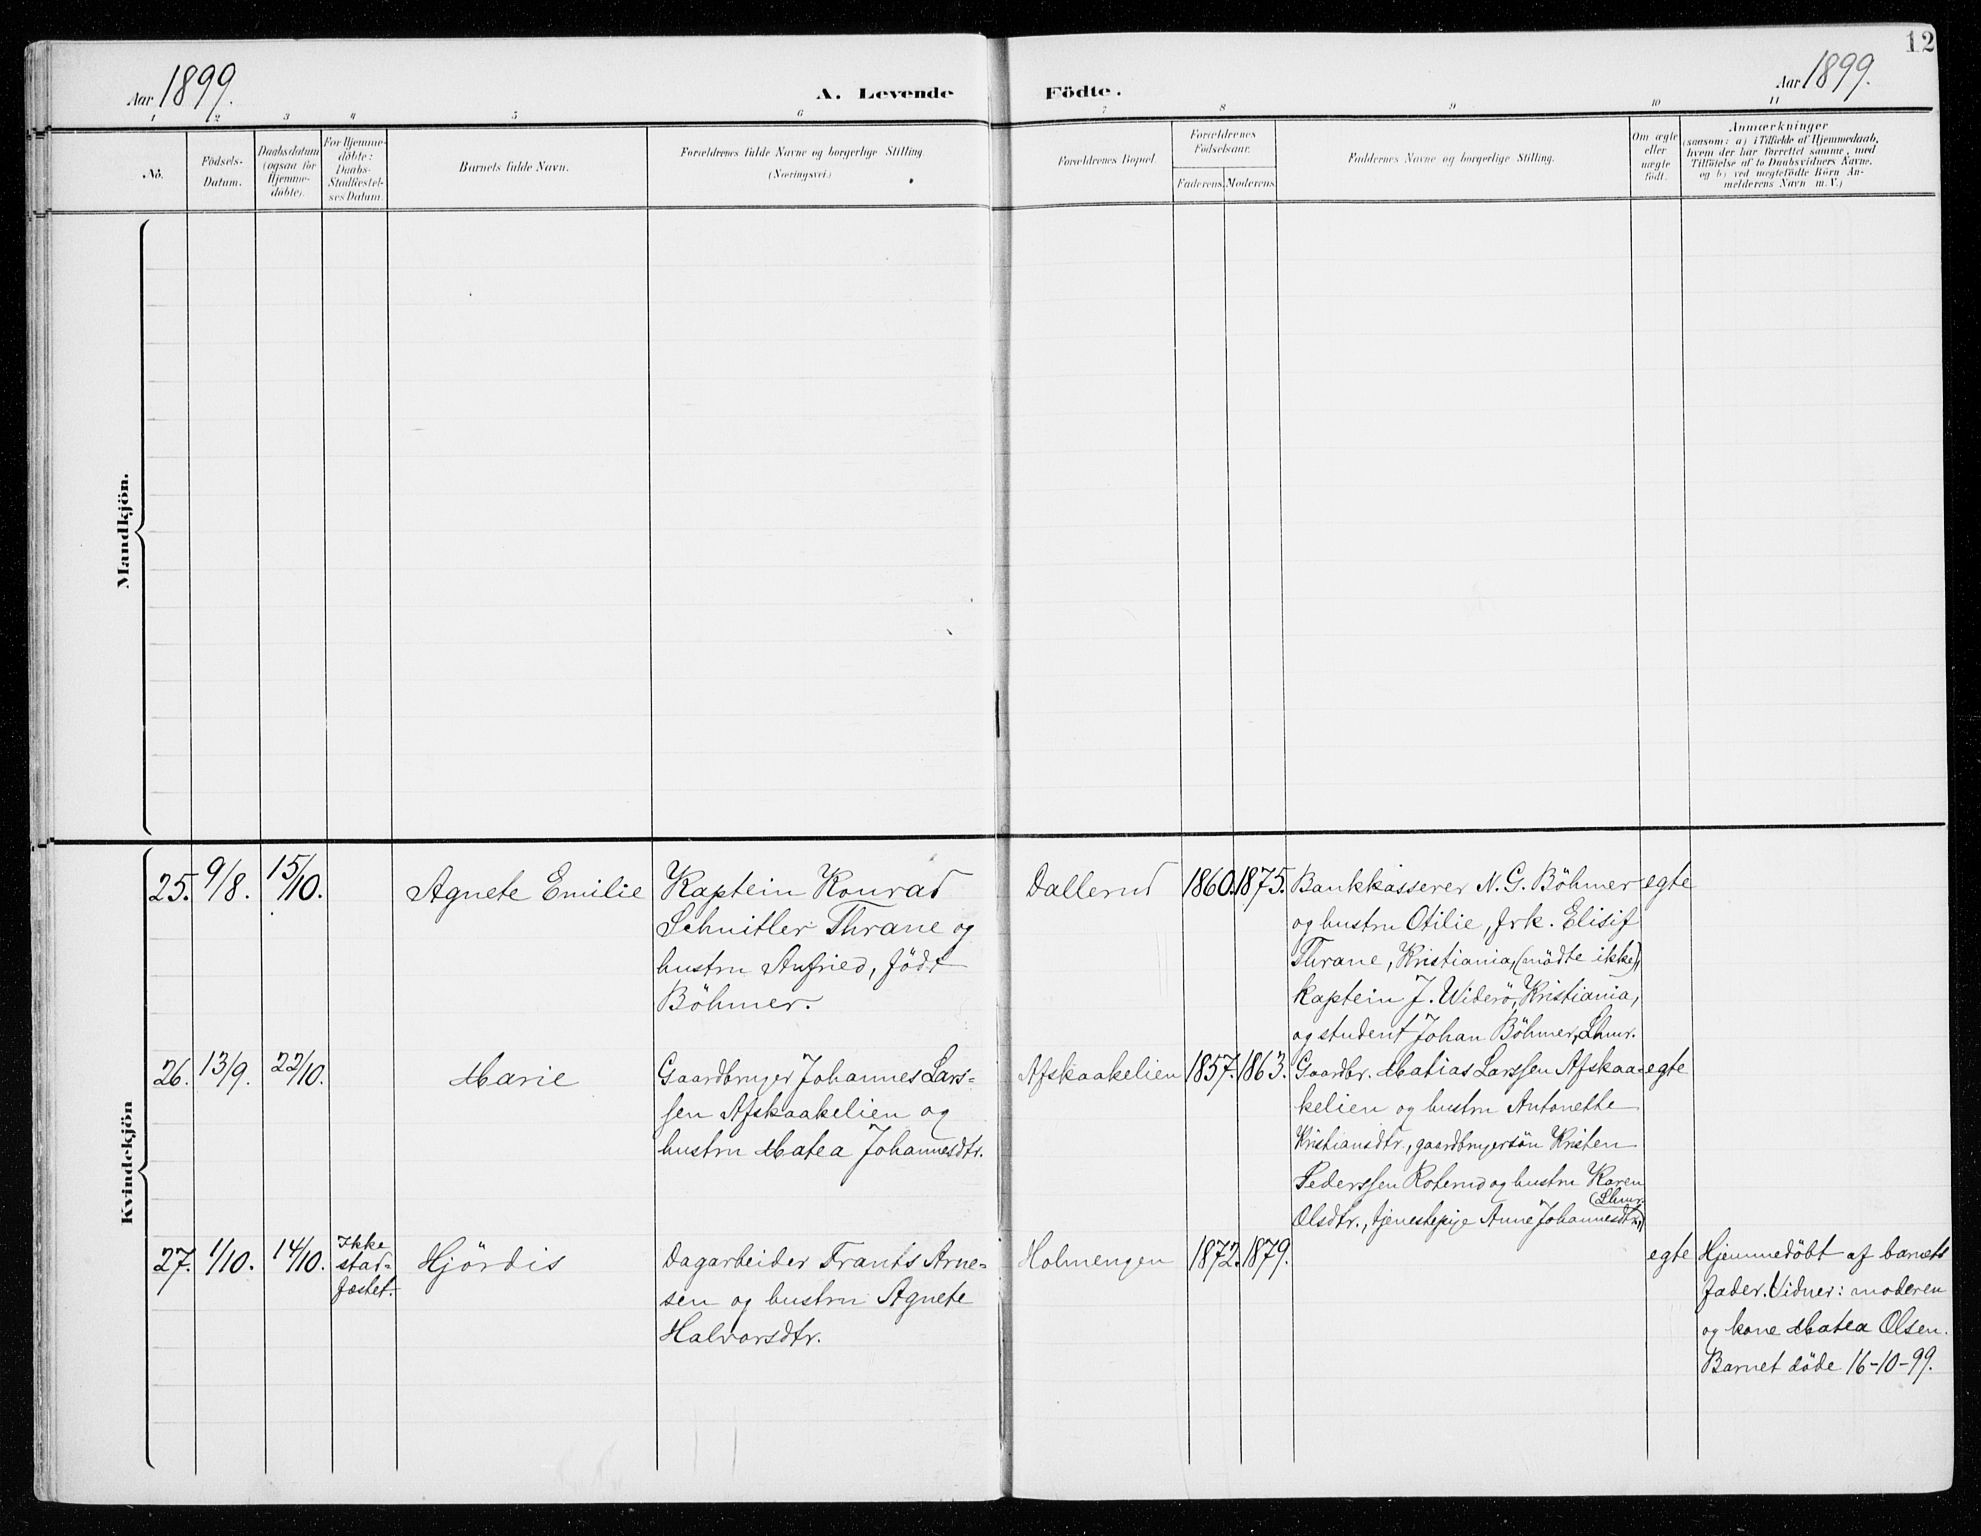 12
Aar 1899.
A. Levende Födte.
Aar 1899.
1 2 3 4 5 6 7 8 9 10 11
No.
Födsels-
Datum.
Daabsdatum
(ogsaa for
Hjemme-
döbte).
For Hjemme-
döbte:
Daabs-
Stadfæstel-
ses Datum.
Barnets fulde Navn.
Forældrenes fulde Navne og borgerlige Stilling
(Næringsvei.)
Forældrenes Bopæl.
Forældrenes
Födselsaar.
Faderens. Moderens.
Faddernes Navne og borgerlige Stilling.
Om ægte
eller
uægte
födt.
Anmærkninger
(saasom: a) i Tilfælde af Hjemmedaab,
hvem der har forrettet samme, med
Tilföielse af to Daabsvidners Navne.
og b) ved uægtefödte Börn An-
melderens Navn m. V.)
Mandkjön.
Kvindekjön
25. 9/8. 15/10. Agnete Emilie
Kaptein Konrad
Schnitler Thrane og
hustru Anfried, född
Böhmer.
Dallerud 1860. 1875.
Bankkasserer N. G. Böhmer
og hustru Otilie, frk. Elisif
Thrane, Kristiania, (mödte ikke),
kaptein J. Widerö, Kristiania,
og student Johan Böhmer, Lhmr.
egte
26. 13/9. 22/10. Marie
Gaardbruger Johannes Lars-
sen Afskaakelien og
hustru Matea Johannesdtr.
Afskaakelien 1857. 1863.
Gaardbr. Matias Larssen Afskaa-
kelien og hustru Antonette
Kristiansdtr., gaardbrugersön Kristen
Pederssen Roterud og hustru Karen
Olsdtr., tjenestepige Anne Johannesdtr. (Lhmr.)
egte
27. 1/10. 14/10.
Ikke
stad-
fæstet.
Hjördis
Dagarbeider Frants Arne-
sen og hustru Agnete
Halvorsdtr.
Holmengen 1872. 1879.
egte
Hjemmedöbt af barnets
fader. Vidner: moderen
og kone Matea Olsen.
Barnet döde 16-10-99.